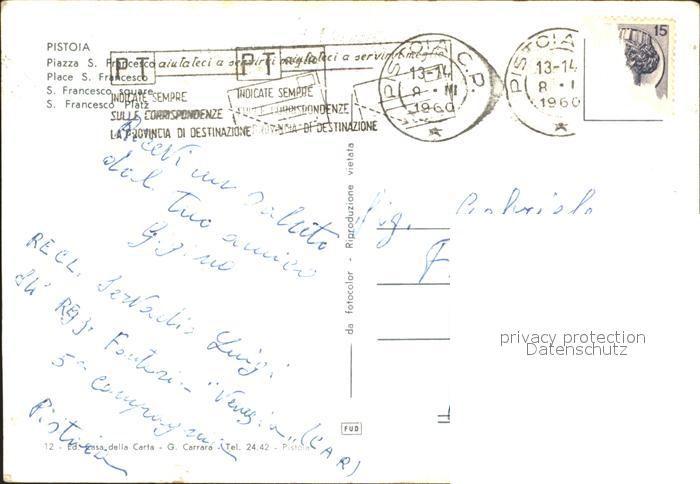 PISTOIA
Piazza S. Francesco
Place S. Francesco
S. Francesco square
S. Francesco Platz
PT aiutateci a servirvi meglio
PT aiutateci a servirvi meglio
INDICATE SEMPRE
SULLE CORRISPONDENZE
LA PROVINCIA DI DESTINAZIONE
INDICATE SEMPRE
SULLE CORRISPONDENZE
PROVINCIA DI DESTINAZIONE
PISTOIA C.P.
13-14
8 · III
1960
PISTOIA
13-14
8 · I
1960
15
Ricevi un saluto
dal tuo amico
Gigino
Sig. Gabriele
F
RECL. Servadio Luigi
84° REGG. Fanteria - "Venezia" (CAR)
5ª Compagnia
Pistoia
da fotocolor - Riproduzione vietata
FUD
12 - Ed. Casa della Carta - G. Carrara - Tel. 24.42 - Pistoia
privacy protection
Datenschutz